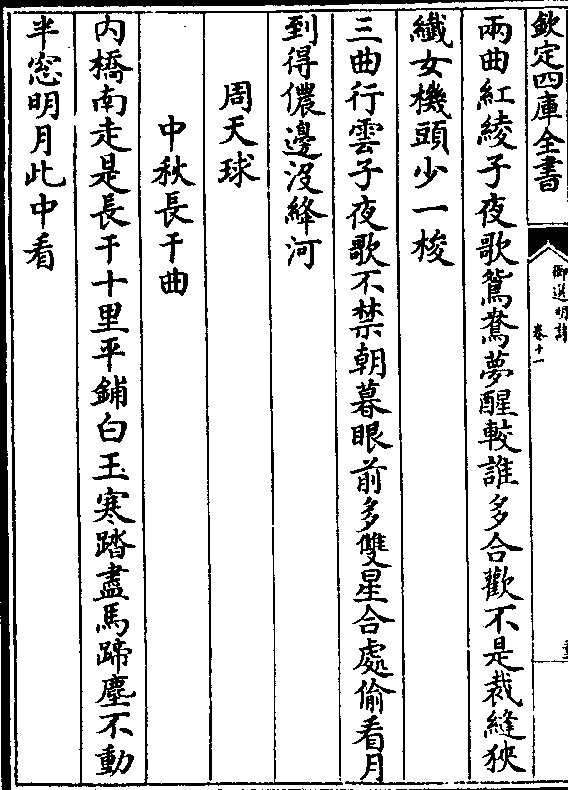 欽定四庫全書
御選明詩
卷十一
兩曲紅綾子夜歌鴛鴦夢醒較誰多合歡不是裁縫狹
織女機頭少一梭
三曲行雲子夜歌不禁朝暮眼前多雙星合處偷看月
到得儂邊沒絳河
周天球
中秋長干曲
內橋南走是長干十里平鋪白玉寒踏盡馬蹄塵不動
半窓明月此中看